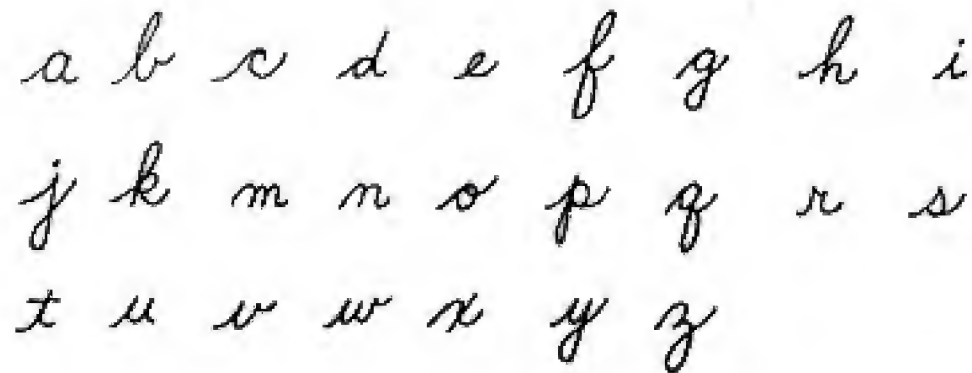 a b c d e f g h i
j k m n o p q r s
t u v w x y z